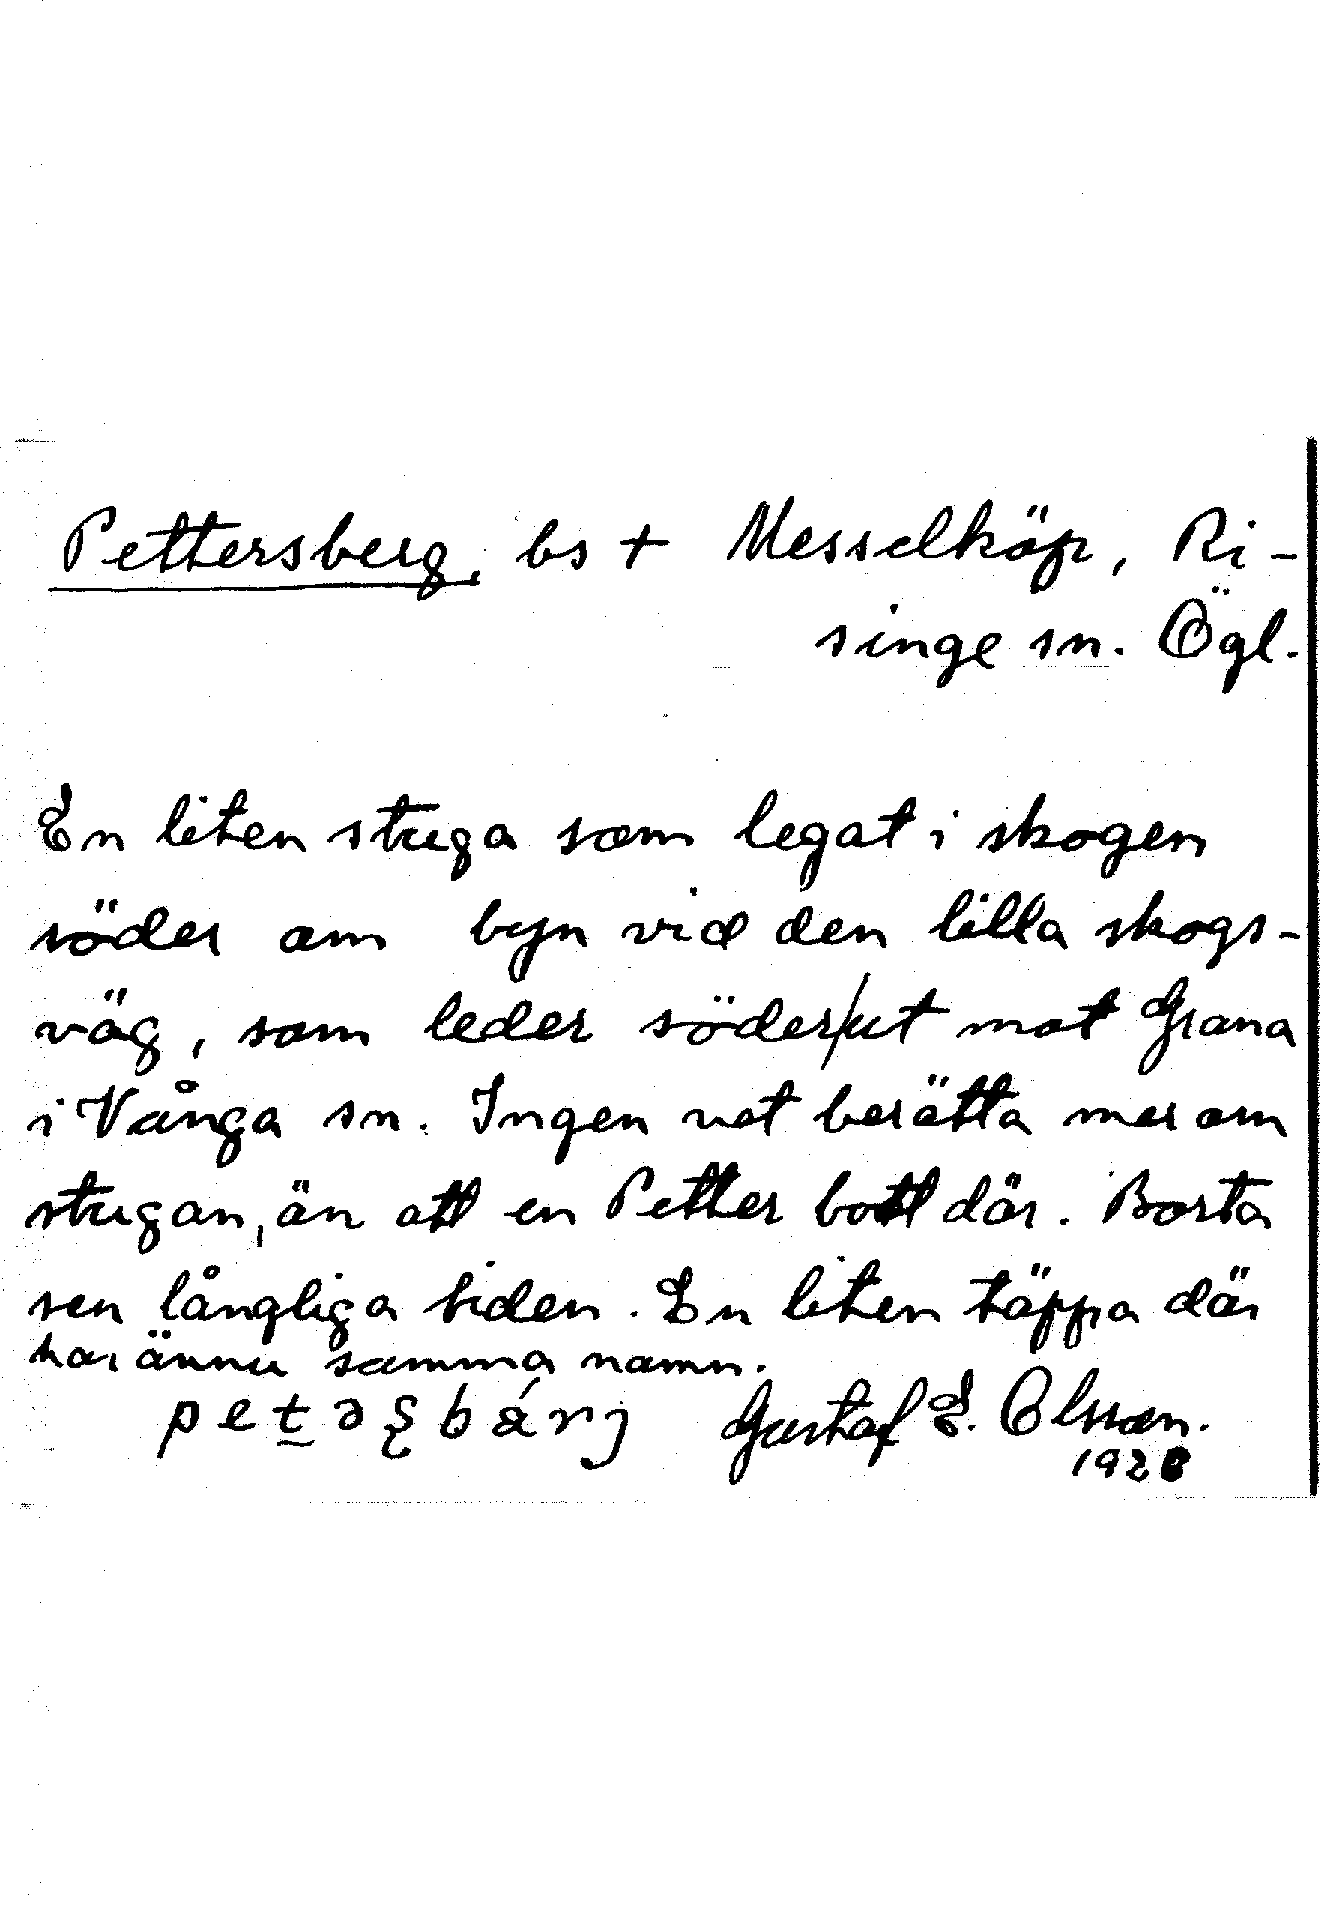 Pettersberg, bs + Messelköp, Ri-
singe sn. Ögl.
En liten stuga som legat i skogen
söder om byn vid den lilla skogs-
väg, som leder söder/ut mot Grana
i Vånga sn. Ingen vet berätta mer om
stugan, än att en Petter bott där. Borta
sen långliga tiden. En liten täppa där
har ännu samma namn.
Gustaf E. Olsson.